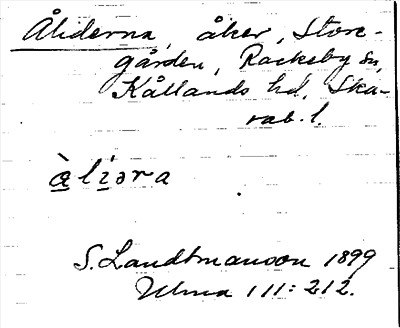 Åliderna, åker, Store-
gården, Rackeby sn,
Kållands hd, Ska-
rab. l.
àliəra
S. Landtmanson 1899
Ulma 111:212.